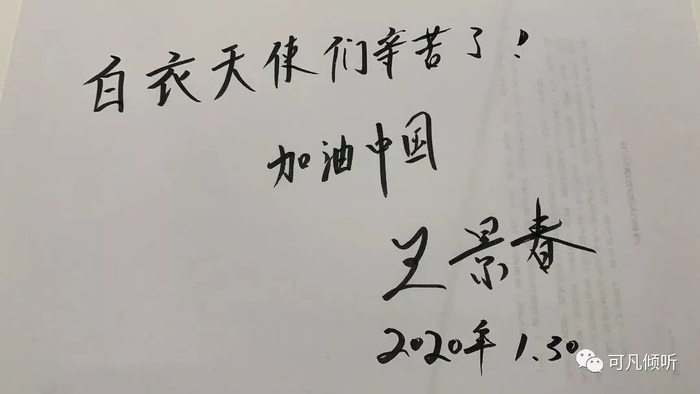 白衣天使们辛苦了！
加油中国
王景春
2020年1.30
可凡倾听